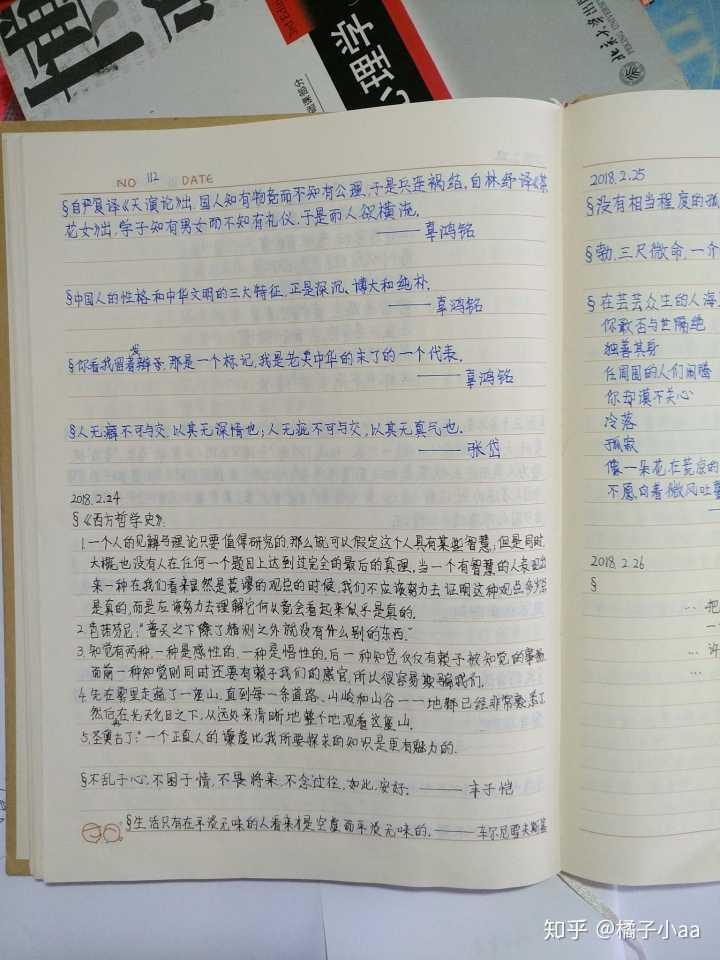 心理学
北京大学出版
PEKING UNIVERSITY
NO 112 DATE
§自严复译《天演论》出,国人知有物竞而不知有公理,于是兵连祸结,自林纾译《茶
花女》出,学子知有男女而不知有礼仪,于是而人欲横流。
——辜鸿铭
§中国人的性格和中华文明的三大特征,正是深沉、博大和纯朴。
——辜鸿铭
§你看我留着发辫子,那是一个标记,我是老大中华的末了的一个代表。
——辜鸿铭
§人无癖不可与交,以其无深情也;人无疵不可与交,以其无真气也。
——张岱
2018.2.24
§《西方哲学史》:
1.一个人的见解与理论只要值得研究的,那么就可以假定这个人具有某些智慧,但是同时,
大概也没有人在任何一个题目上达到过完全的最后的真理。当一个有智慧的人表现出
来一种在我们看来显然是荒谬的观点的时候,我们不应该努力去证明这种观点多少
是真的,而是应该努力去理解它何以竟会看起来似乎是真的。
2.色诺芬尼:“普天之下除了猜测之外就没有什么别的东西。”
3.知觉有两种,一种是感性的,一种是悟性的,后一种知觉仅仅有赖于被知觉的事物,
而前一种知觉则同时还要有赖于我们的感官,所以很容易欺骗我们。
4.先在雾里走遍了一座山,直到每一条道路、山岭和山谷一一地都已经非常熟悉了,
然后在光天化日之下,从远处来清晰地整个地观看这座山。
5.圣奥古丁:“一个正直人的谦虚比我所要探求的知识是更有魅力的.
§不乱于心,不困于情,不畏将来,不念过往,如此,安好。——丰子恺
§生活只有在平淡无味的人看来才是空虚而平淡无味的。——车尔尼雪夫斯基
2018.2.25
§没有相当程度的孤
§勃,三尺微命,一介
§在芸芸众生的人海
你敢否与世隔绝
独善其身
任周围的人们闹腾
你却漠不关心
冷落
孤寂
像一朵花在荒凉的
不愿向着微风吐
2018.2.26
§
…把
一
…许
…
知乎 @橘子小aa